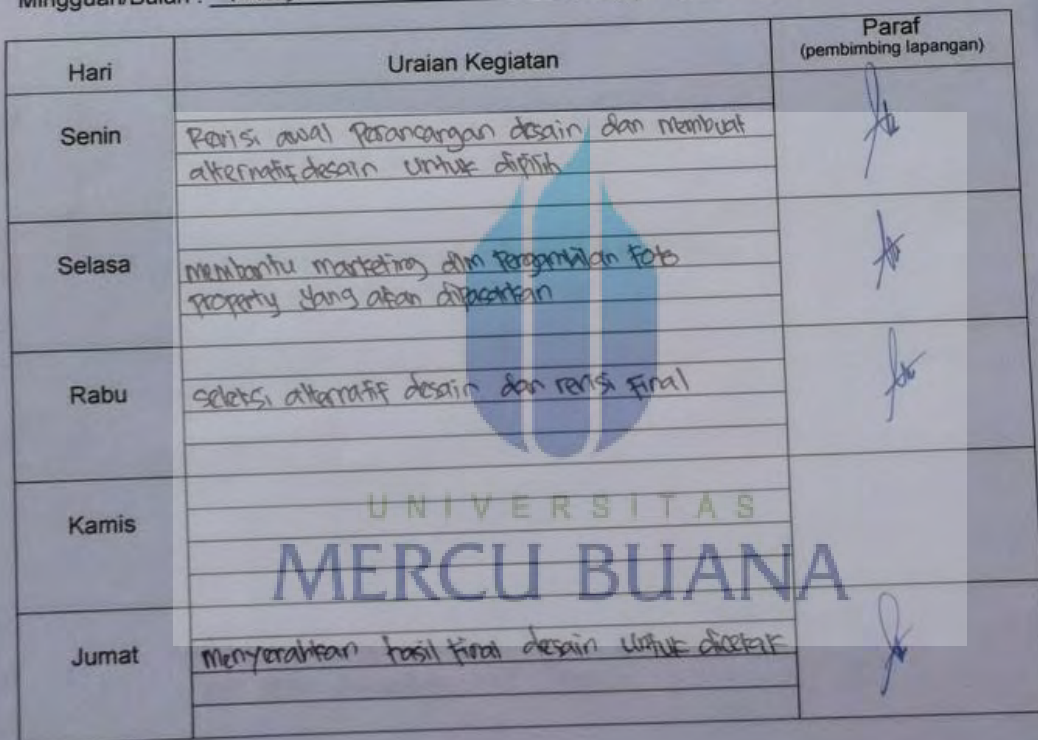 Mingguan/Bulan :
Hari
Uraian Kegiatan
Paraf
(pembimbing lapangan)
Senin
Revisi awal Perancangan desain dan membuat
alternatif desain untuk dipilih
Selasa
membantu marketing dlm Pengambilan Foto
property yang akan dipasarkan
Rabu
seleksi alternatif desain dan revisi Final
UNIVERSITAS
MERCU BUANA
Kamis
Jumat
menyerahkan hasil final desain untuk dicetak